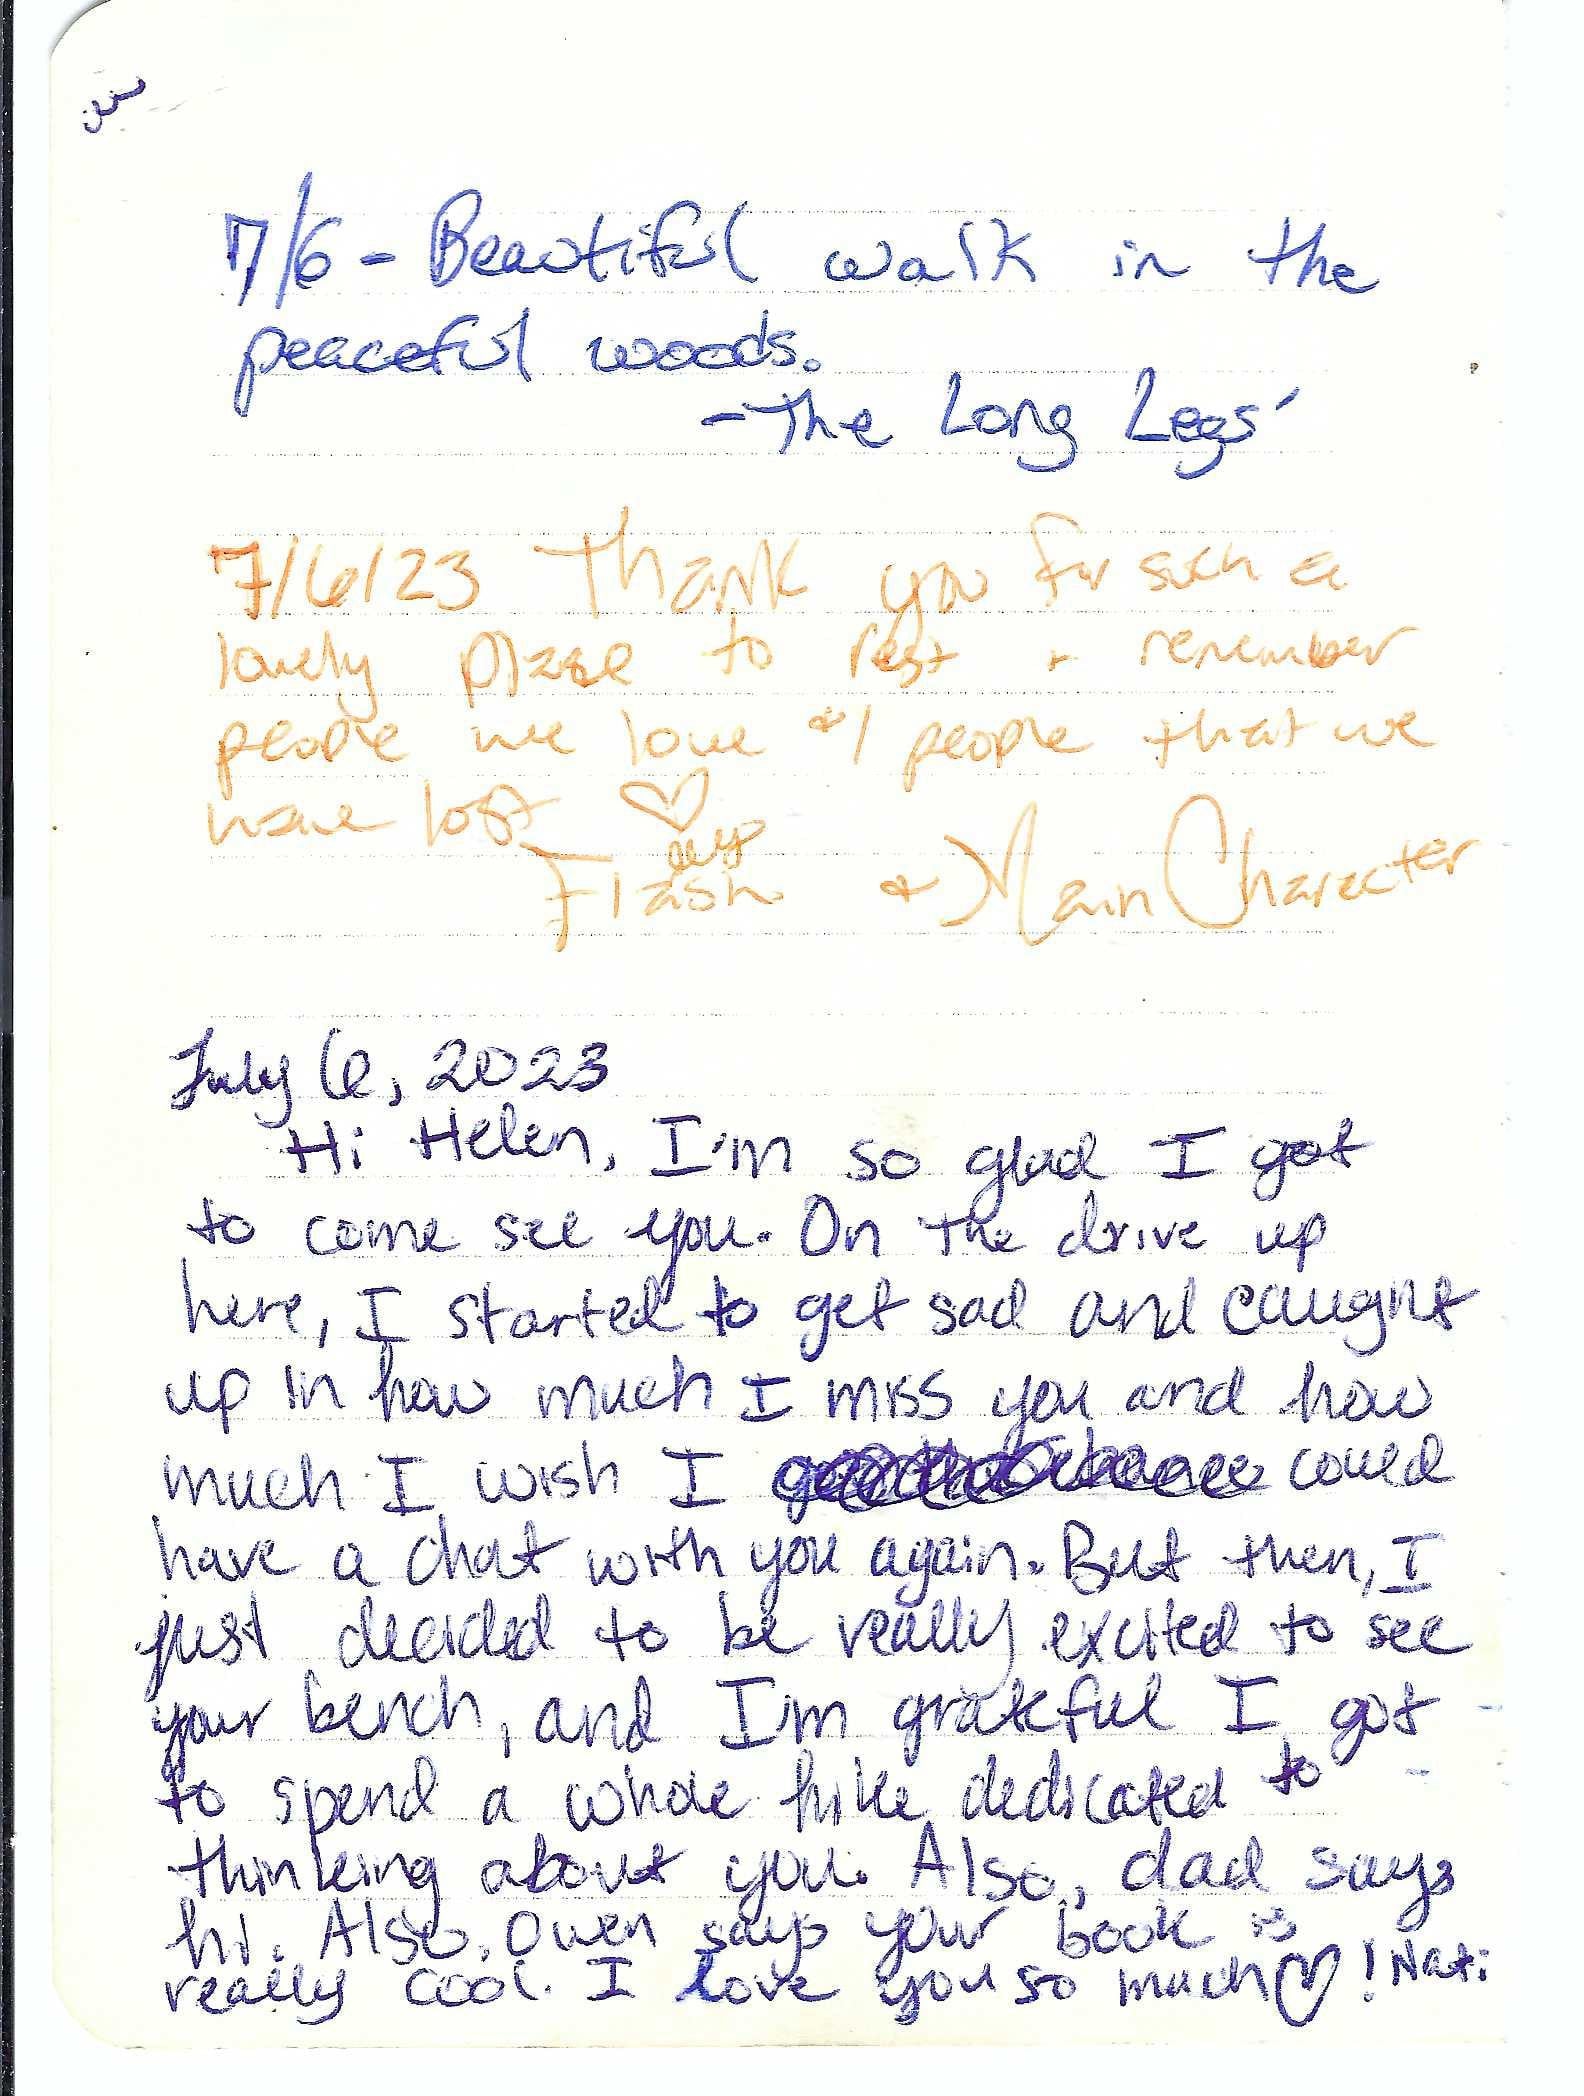 7/6 - Beautiful walk in the
peaceful woods.
- The Long Legs'
7/6/23 Thank you for such a
lovely place to rest + remember
people we love & people that we
have lost ♡
Flash & Main Character
July 6, 2023
Hi Helen, I'm so glad I got
to come see you. On the drive up
here, I started to get sad and caught
up in how much I miss you and how
much I wish I could
have a chat with you again. But then, I
just decided to be really excited to see
your bench, and I'm grateful I got
to spend a whole hike dedicated to
thinking about you. Also, dad says
hi. Also, Owen says your book is
really cool. I love you so much ♡! Nati